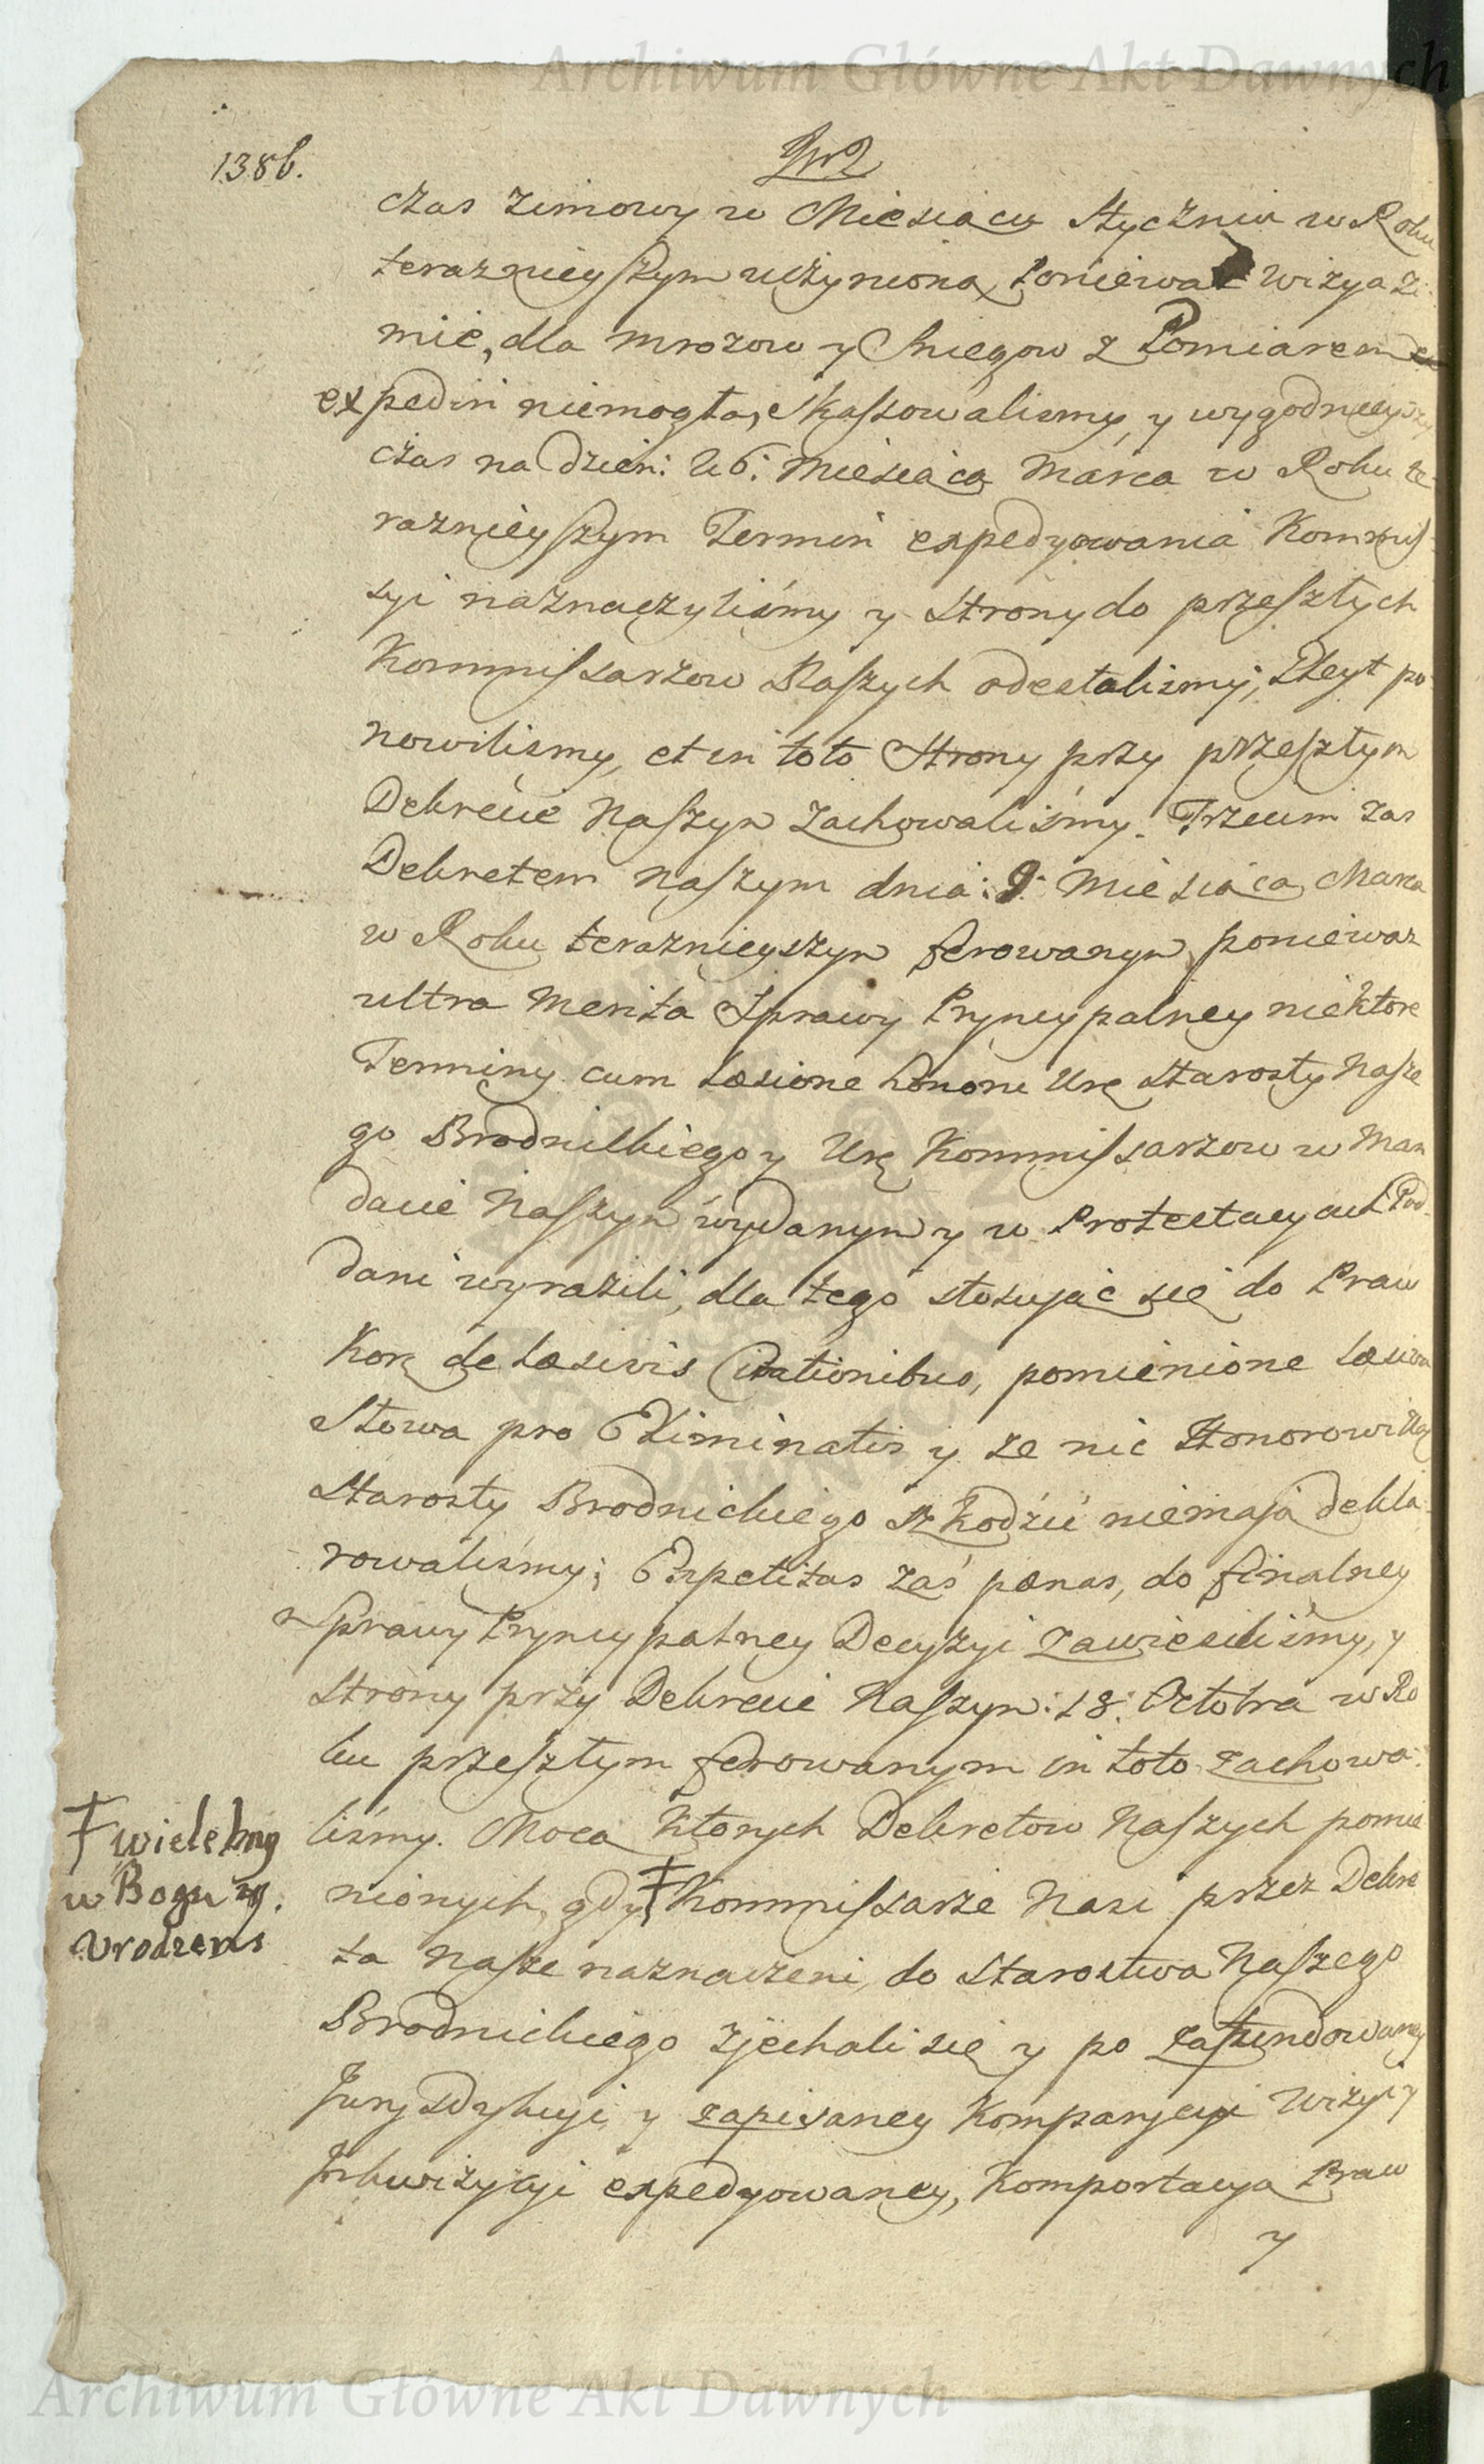 Archiwum Główne Akt Dawnych
138b.
czas zimowy w Miesiącu Styczniu w Roku
teraznieyszym uczyniona, poniewaz wizya zi
mie, dla mrozow y Sniegow z Pomiarem
expediri niemogła, skassowalismy, y wygodnieyszy
czas na dzien: 26: Miesiąca Marca w Roku te
raznieyszym Termin expedyowania Kommis
syi naznaczyliśmy y Strony do przeszłych
Kommissarzow Naszych odesłalismy, Kleyt po
nowilismy, et in toto Strony przy przeszłym
Dekrecie Naszym zachowaliśmy. Trzecim zas
Dekretem Naszym dnia: 9: Miesiąca Marca
w Roku teraznieyszym ferowanym, poniewaz
ultra Merita Sprawy Pryncypalney niektore
Terminy cum læsione honoru Urę Starosty Nasze
go Brodnickiego y Urę Kommissarzow w Man
dacie Naszym wydanym y w Protestacyach Pod
dani wyrazili, dla tego stosując się do Praw
Korę de læsivis Citationibus, pomienione læsiva
Słowa pro Eliminatis y ze nic Honorowi
Starosty Brodnickiego szkodzić niemają dekla
rowalismy; Expetitas zaś pænas, do finalney
Sprawy Pryncypalney Decyzyi zawiesiliśmy, y
Strony przy Dekrecie Naszym: 18: Octobra w Ro
ku przeszłym ferowanym in toto zachowa
liśmy. Mocą ktorych Dekretow Naszych pomie
nionych, gdy † Kommissarze Nasi przez Dekre
ta Nasze naznaczeni, do Starostwa Naszego
Brodnickiego zjechali się y po zafundowaney
Jurysdykcyi y zapisaney Komparycyi Wizyi y
Inkwizycyi expedyowaney, Komportacya Praw
y
† wielebny
w Bogu y
Urodzeni
Archiwum Główne Akt Dawnych